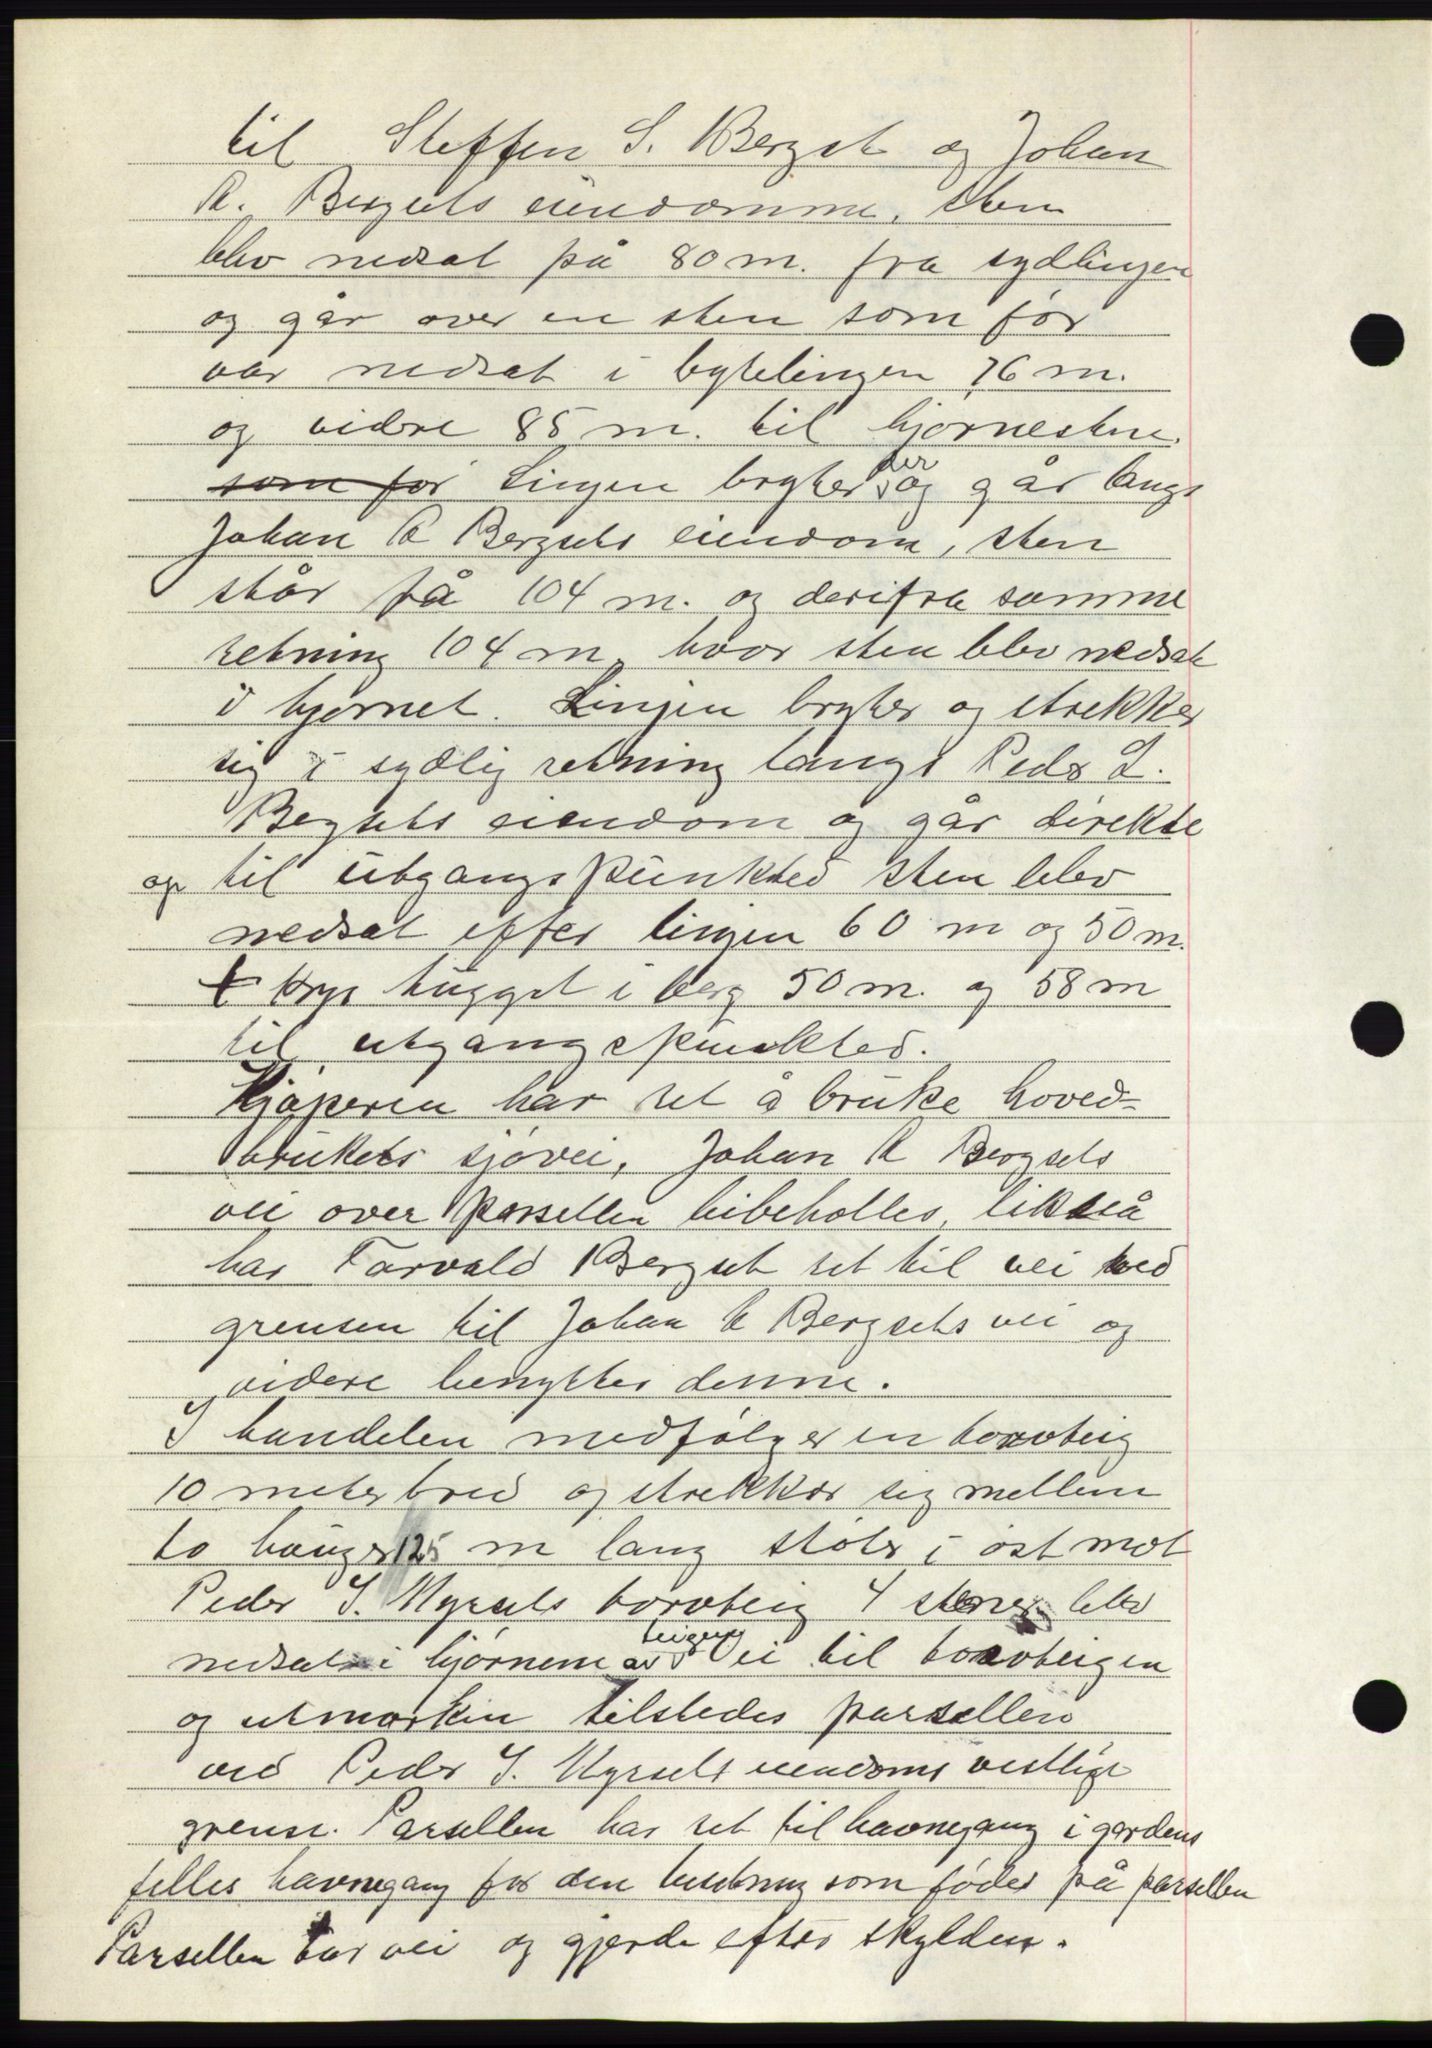 til Steffen S. Bergset og Johan
R. Bergsets eiendomme, sten
blev nedsat på 80 m. fra sydlinjen
og går over en sten som før
var nedsat i bytelinjen 76 m.
og videre 85 m. til hjørnesten.
som før Linjen bryter der og går langs
Johan R Bergsets eiendom, sten
står på 104 m. og derifra samme
retning 104 m, hvor sten blev nedsat
i hjørnet. Linjen bryter og strekker
sig i sydlig retning langs Peder L.
Bergsets eiendom og går direkte
op til utgangspunkted sten blev
nedsat efter linjen 60 m og 50 m.
+ krys hugget i berg 50 m. og 58 m
til utgangspunkted.
Kjøperen har ret å bruke hoved-
brukets sjøvei, Johan R Bergsets
vei over parsellen bibeholles, likeså
har Torvald Bergset ret til vei ved
grensen til Johan R Bergsets vei og
videre benyttes denne.
I handelen medfølger en torvteig
10 meter bred og strekker sig mellem
to hauger 125 m lang støter i øst mot
Peder I. Myrsets torvteig 4 stener blev
nedsat i hjørnene av teigen Vei til torvteigen
og utmarken tilstedes parsellen
ved Peder I. Myrsets eiendoms vestlige
grense. Parsellen har ret til havnegang i gardens
felles havnegang for den besetning som føder på parsellen
Parsellen tar vei og gjerde efter skylden.